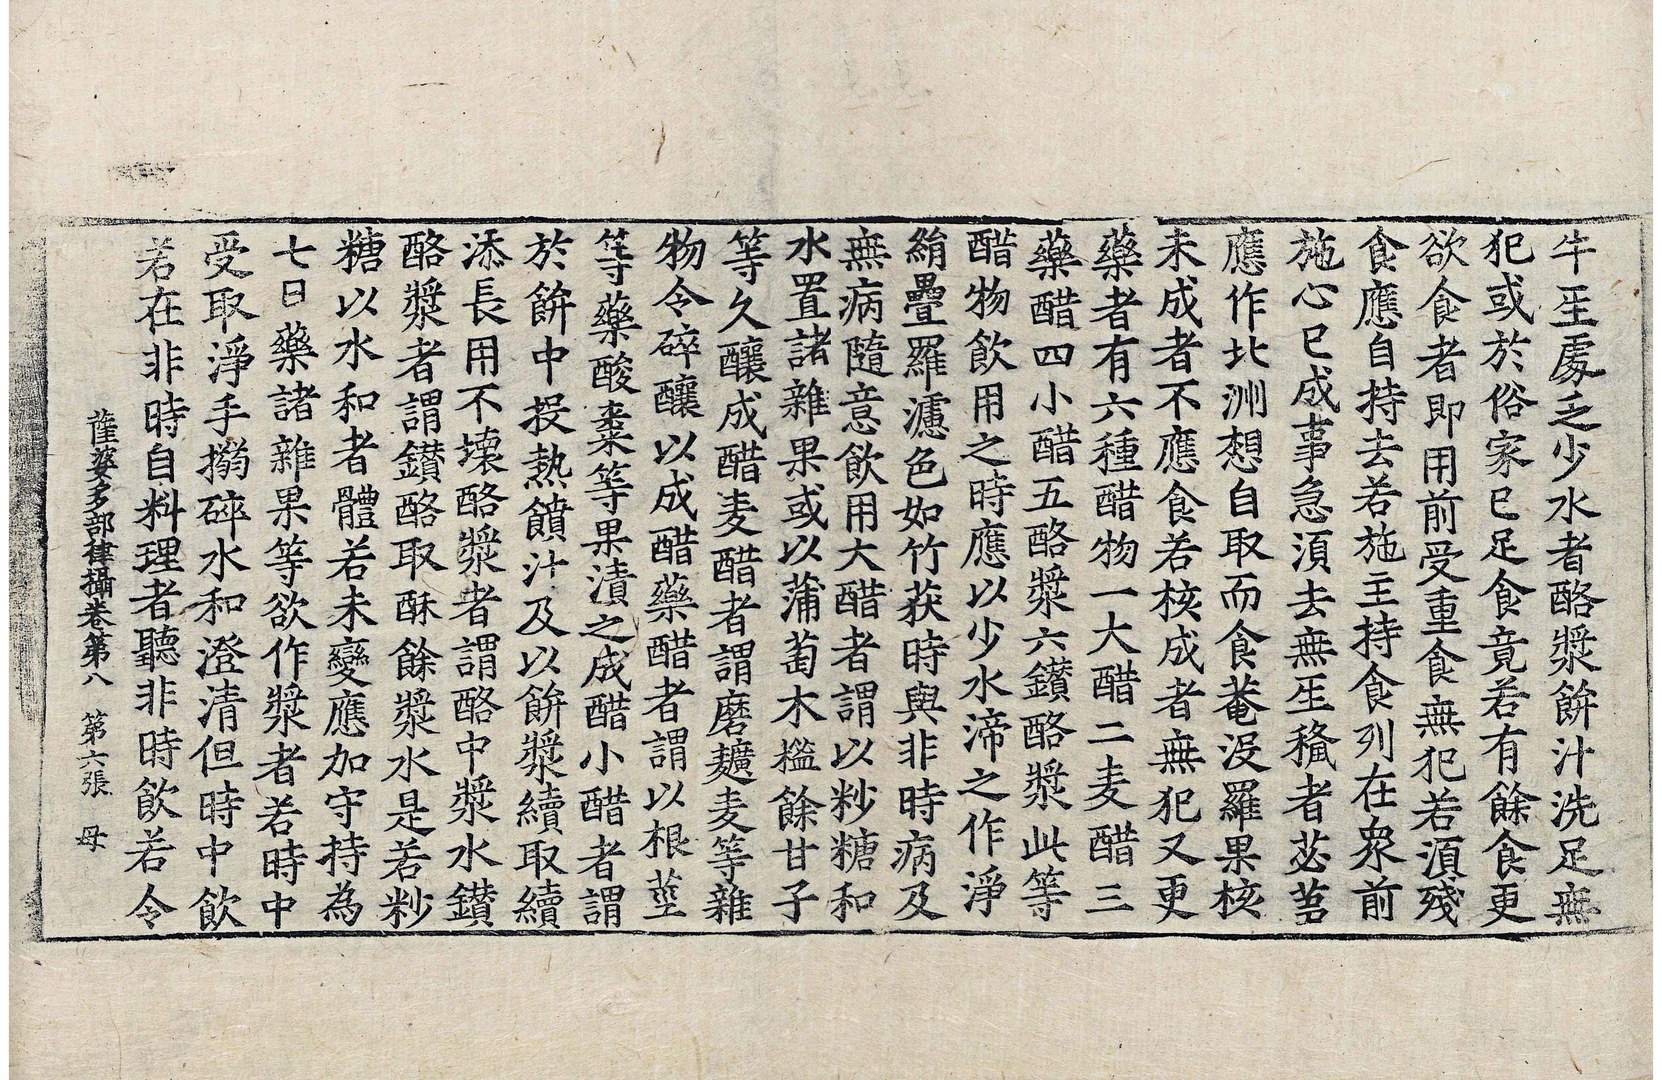 牛𤯔處乏少水者酪漿餅汁洗足無
犯或於俗家已足食竟若有餘食更
欲食者即用前受重食無犯若湏殘
食應自持去若施主持食列在衆前
施心已成事急湏去無𤯔穢者苾芻
應作北洲想自取而食菴没羅果核
未成者不應食若核成者無犯又更
藥者有六種醋物一大醋二麦醋三
藥醋四小醋五酪漿六鑚酪漿此等
醋物飲用之時應以少水渧之作淨
絹疊羅濾色如竹荻時與非時病及
無病隨意飲用大醋者謂以粆糖和
水置諸雜果或以蒲萄木㯺餘甘子
等久釀成醋麦醋者謂磨䵃麦等雜
物令碎釀以成醋藥醋者謂以根莖
等藥酸棗等果漬之成醋小醋者謂
於餅中投熱饙汁及以餅漿續取續
添長用不壊酪漿者謂酪中漿水鑚
酪漿者謂鑚酪取酥餘漿水是若粆
糖以水和者體若未變應加守持為
七日藥諸雜果等欲作漿者若時中
受取淨手搦碎水和澄清但時中飲
若在非時自料理者聽非時飲若令
薩婆多部律攝卷第八　第六張　母